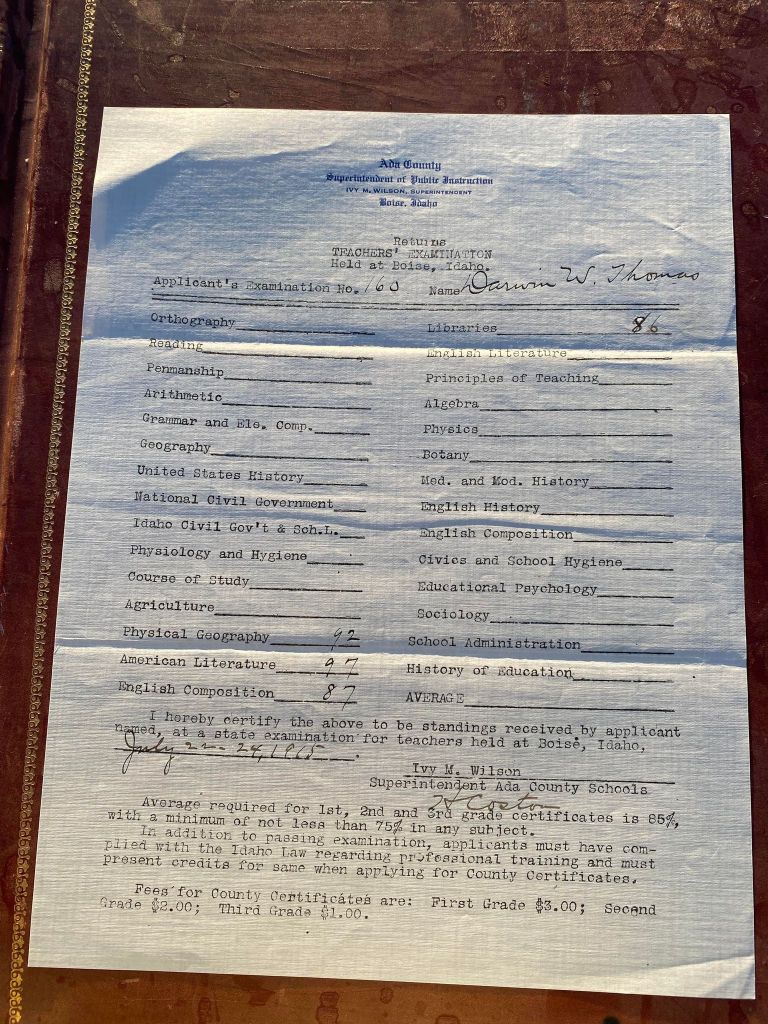 Ada County
Superintendent of Public Instruction
IVY M. WILSON, SUPERINTENDENT
Boise, Idaho
Returns
TEACHERS' EXAMINATION
Held at Boise, Idaho.
Applicant's Examination No. 160 Name Darwin W. Thomas
Orthography
Libraries 86
Reading
English Literature
Penmanship
Principles of Teaching
Arithmetic
Algebra
Grammar and Ele. Comp.
Physics
Geography
Botany
United States History
Med. and Mod. History
National Civil Government
English History
Idaho Civil Gov't & Sch.L.
English Composition
Physiology and Hygiene
Civics and School Hygiene
Course of Study
Educational Psychology
Agriculture
Sociology
Physical Geography 92
School Administration
American Literature 97
History of Education
English Composition 87
AVERAGE
I hereby certify the above to be standings received by applicant
named, at a state examination for teachers held at Boise, Idaho,
July 22-24, 1915.
Ivy M. Wilson
Superintendent Ada County Schools
Average required for 1st, 2nd and 3rd grade certificates is 85%,
with a minimum of not less than 75% in any subject.
In addition to passing examination, applicants must have com-
plied with the Idaho Law regarding professional training and must
present credits for same when applying for County Certificates.
Fees for County Certificates are: First Grade $3.00; Second
Grade $2.00; Third Grade $1.00.